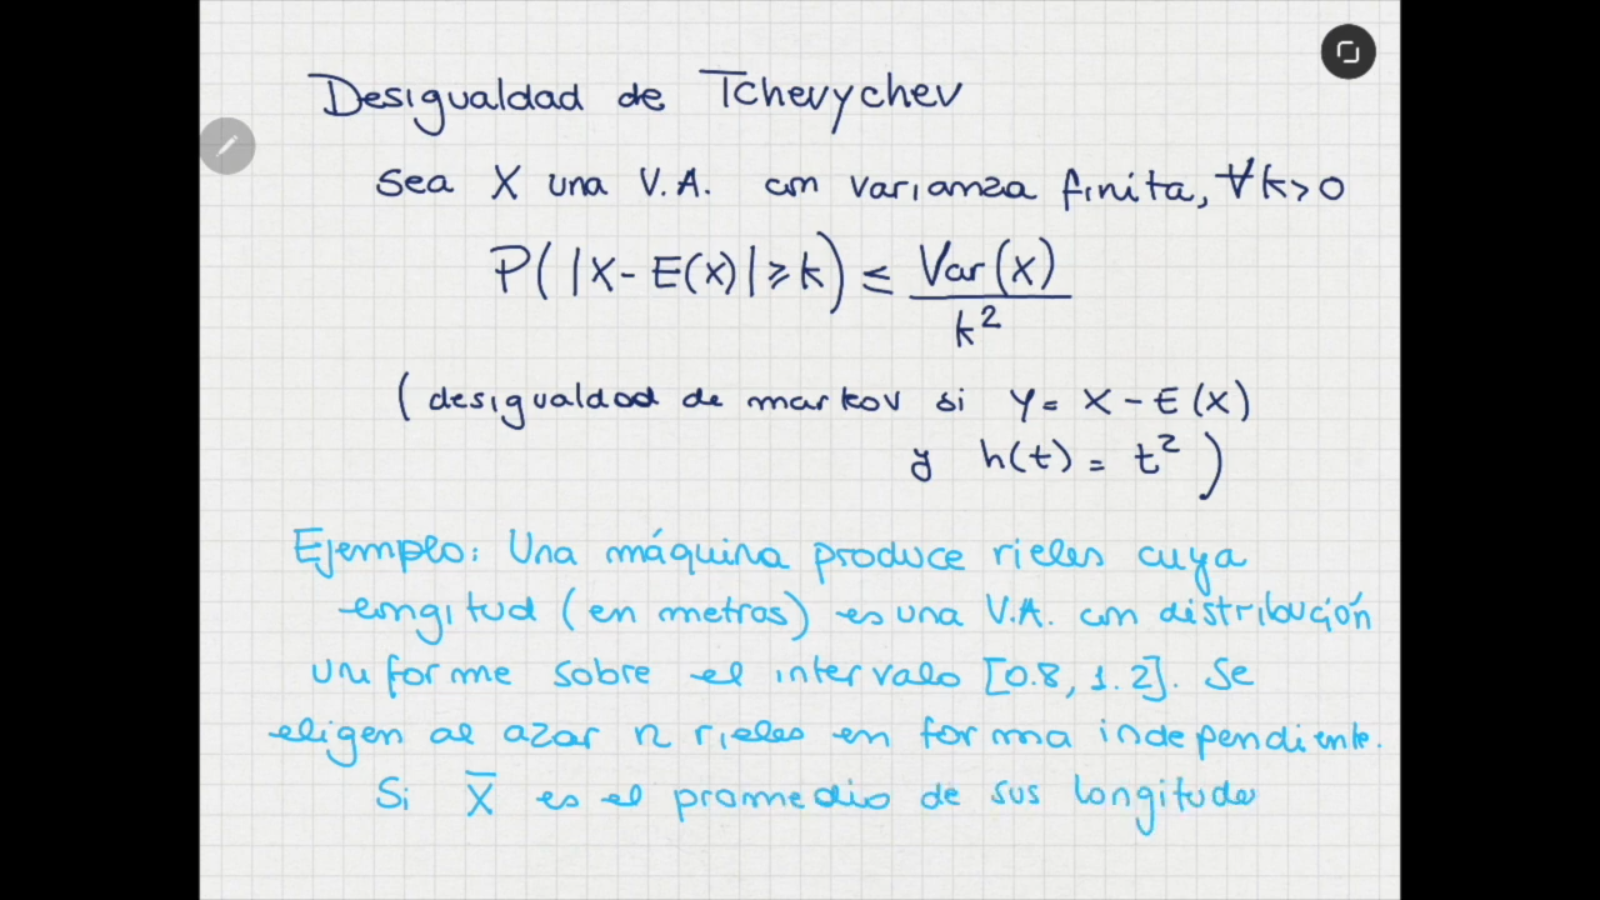 Desigualdad de Tchevychev
sea X una V.A. con varianza finita, ∀k>0
P( |X - E(x)| ≥ k ) ≤ Var(x) / k²
( desigualdad de markov si Y = X - E(X)
y h(t) = t² )
Ejemplo: Una máquina produce rieles cuya
longitud (en metros) es una V.A. con distribución
uniforme sobre el intervalo [0.8, 1.2]. Se
eligen al azar n rieles en forma independiente.
Si X̅ es el promedio de sus longitudes